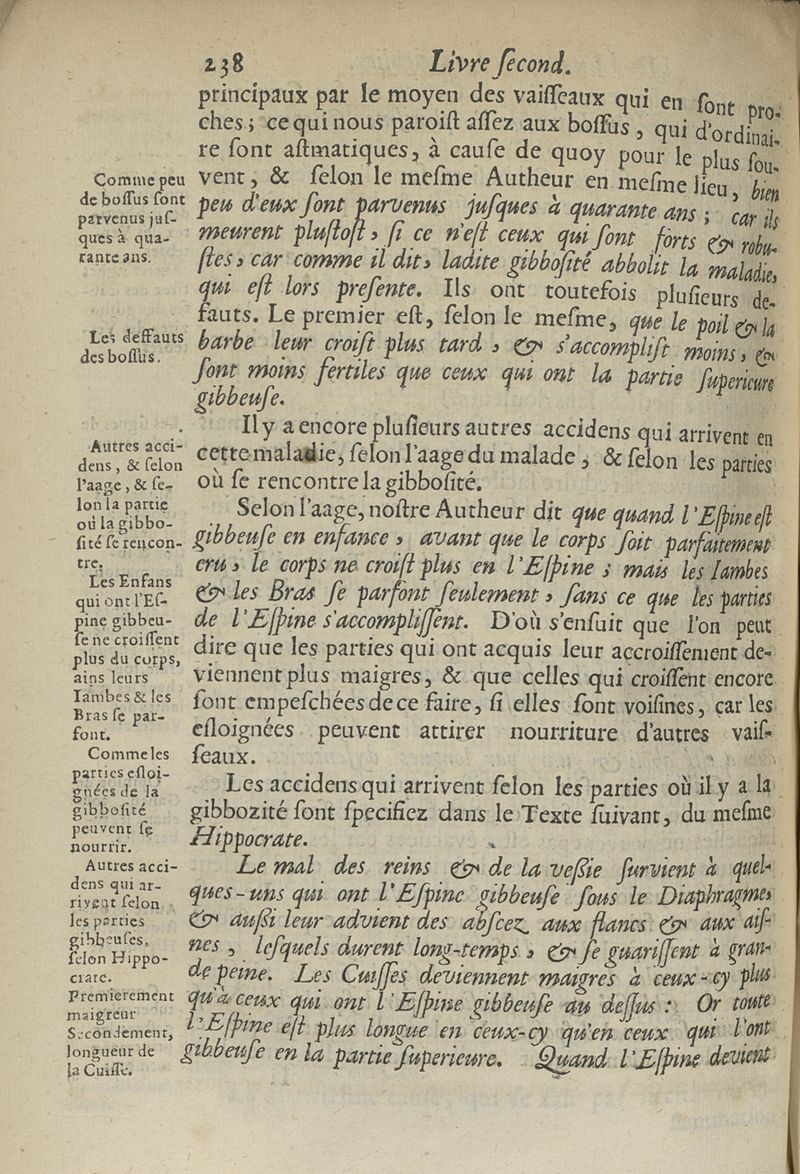 238 Livre ſecond.
principaux par le moyen des vaiſſeaux qui en ſont pro-
ches ; ce qui nous paroiſt aſſez aux boſſus , qui d'ordinai-
re ſont aſtmatiques, à cauſe de quoy pour le plus ſou-
vent, & ſelon le meſme Autheur en meſme lieu, bien
peu d'eux ſont parvenus juſques à quarante ans ; car ils
meurent pluſtoſt, ſi ce n'eſt ceux qui ſont forts & robu-
ſtes, car comme il dit, ladite gibboſité abbolit la maladie,
qui eſt lors preſente. Ils ont toutefois pluſieurs de-
fauts. Le premier eſt, ſelon le meſme, que le poil & la
barbe leur croiſt plus tard , & s'accompliſt moins, &
ſont moins fertiles que ceux qui ont la partie ſuperieure
gibbeuſe.
Il y a encore pluſieurs autres accidens qui arrivent en
cette maladie, ſelon l'aage du malade , & ſelon les parties
où ſe rencontre la gibboſité.
Selon l'aage, noſtre Autheur dit que quand l'Eſpine eſt
gibbeuſe en enfance , avant que le corps ſoit parfaitement
cru, le corps ne croiſt plus en l'Eſpine ; mais les Iambes
& les Bras ſe parfont ſeulement , ſans ce que les parties
de l'Eſpine s'accompliſſent. D'où s'enſuit que l'on peut
dire que les parties qui ont acquis leur accroiſſement de-
viennent plus maigres, & que celles qui croiſſent encore
ſont empeſchées de ce faire, ſi elles ſont voiſines, car les
eſloignées peuvent attirer nourriture d'autres vaiſ-
ſeaux.
Les accidens qui arrivent ſelon les parties où il y a la
gibbozité ſont ſpecifiez dans le Texte ſuivant, du meſme
Hippocrate.
Le mal des reins & de la veſsie ſurvient à quel-
ques-uns qui ont l'Eſpine gibbeuſe ſous le Diaphragme,
& auſsi leur advient des abſcez aux flancs & aux aiſ-
nes , leſquels durent long-temps , & ſe guariſſent à gran-
de peine. Les Cuiſſes deviennent maigres à ceux-cy plus
qu'à ceux qui ont l'Eſpine gibbeuſe au deſſus : Or toute
l'Eſpine eſt plus longue en ceux-cy qu'en ceux qui l'ont
gibbeuſe en la partie ſuperieure. Quand l'Eſpine devient
Comme peu
de boſſus ſont
parvenus juſ-
ques à qua-
rante ans.
Les deffauts
des boſſus.
Autres acci-
dens, & ſelon
l'aage, & ſe-
lon la partie
où la gibbo-
ſité ſe rencon-
tre.
Les Enfans
qui ont l'Eſ-
pine gibbeu-
ſe ne croiſſent
plus du corps,
ains leurs
Iambes & les
Bras ſe par-
font.
Comme les
parties eſloi-
gnées de la
gibboſité
peuvent ſe
nourrir.
Autres acci-
dens qui ar-
rivent ſelon
les parties
gibbeuſes,
ſelon Hippo-
crate.
Premierement
maigreur
Secondement,
longueur de
la Cuiſſe.